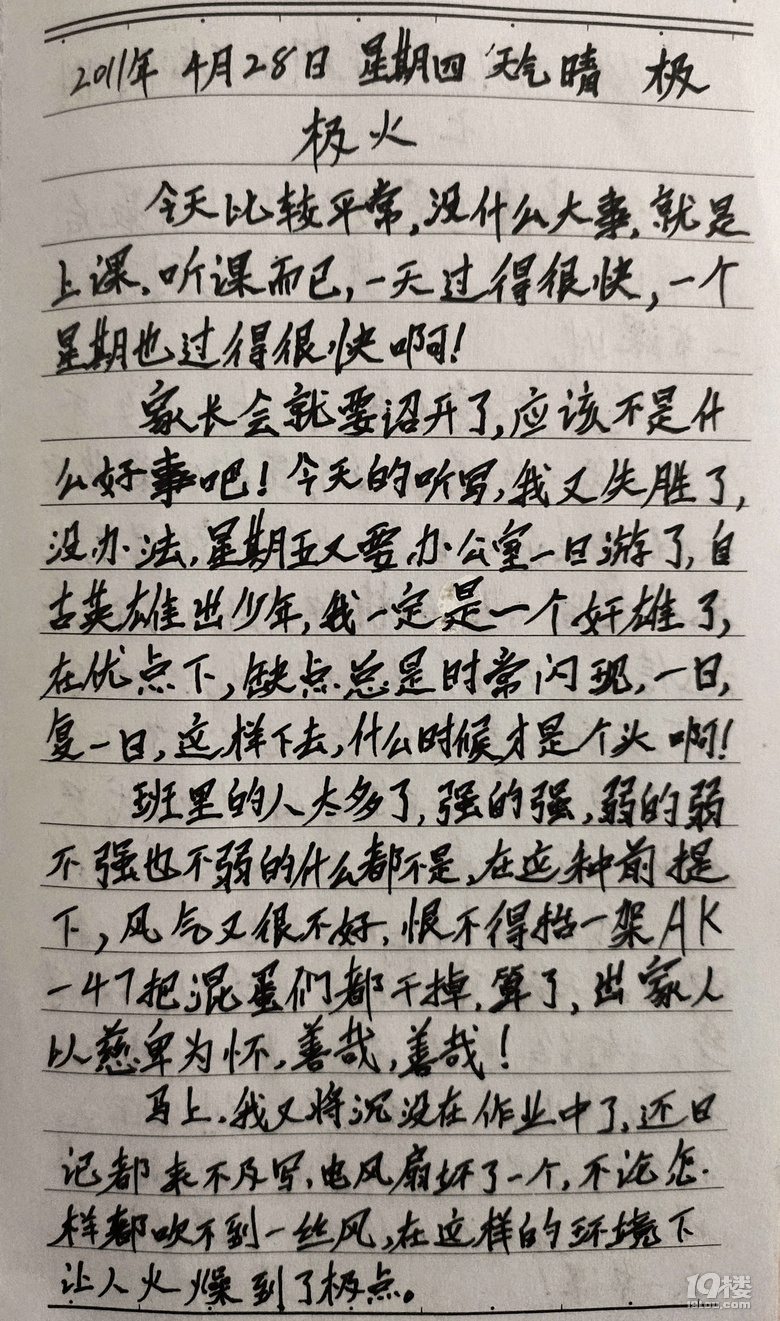 2011年 4月28日 星期四 天气晴 极
极火
今天比较平常,没什么大事,就是
上课,听课而已,一天过得很快,一个
星期也过得很快啊!
家长会就要诏开了,应该不是什
么好事吧!今天的听写,我又失胜了,
没办法,星期五又要办公室一日游了,自
古英雄出少年,我一定是一个奸雄了,
在优点下,缺点总是时常闪现,一日,
复一日,这样下去,什么时候才是个头啊!
班里的人太多了,强的强,弱的弱
不强也不弱的什么都不是,在这种前提
下,风气又很不好,恨不得抬一架AK
-47把混蛋们都干掉,算了,出家人
以慈卑为怀,善哉,善哉!
马上,我又将沉没在作业中了,还日
记都来不及写,电风扇坏了一个,不论怎
样都吹不到一丝风,在这样的环境下
让人火燥到了极点。
19楼
19lou.com